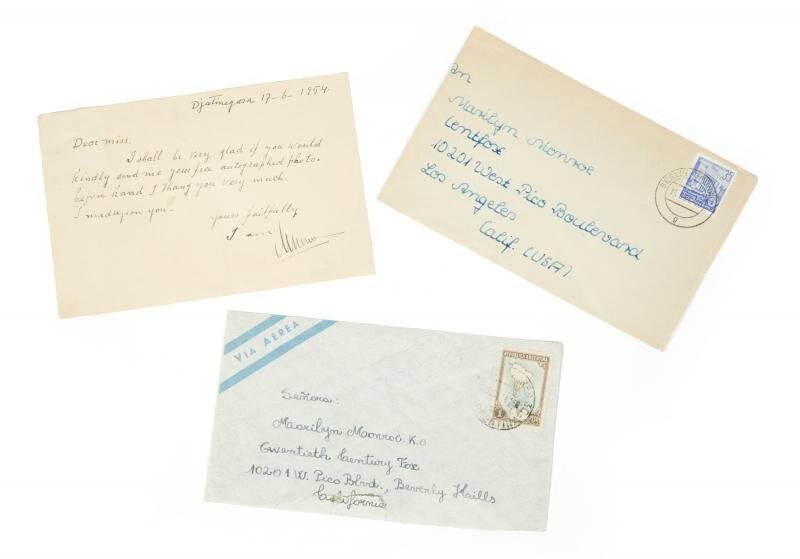 Djatinegara 17-6-1954.
Dear miss.
I shall be very glad if you would
kindly send me your free autographed photo.
before hand I thang you very much.
I madeupon you.
yours faitfully
I am
an
Marilyn Monroe
Centfox
10201 West Pico Boulevard
Los Angeles
Calif. (USA)
35
g
VIA AEREA
REPUBLICA ARGENTINA
1
Señora:
Maarilyn Monroe. K.O
Twentieth Century Fox
10201 W. Pico Blvd., Beverly Haills
California